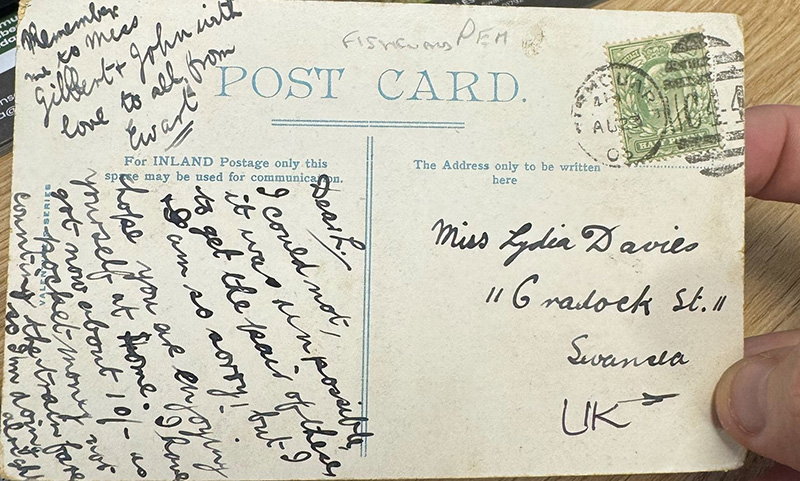 Remember
me to Miss
Gilbert & John with
love to all from
Ewart
FISHGUARD PEM
POST CARD.
For INLAND Postage only this
space may be used for communication.
The Address only to be written
here
AU 23
Dear L.
I could not,
it was impossible,
to get the pair of these
I am so sorry! but I
hope you are enjoying
yourself at home. I have
got now about 10/- as
pocket-money not
counting the train fare
so I'm doing
alright
Miss Lydia Davies
"6 Cradock St."
Swansea
UK
VALENTINE'S SERIES